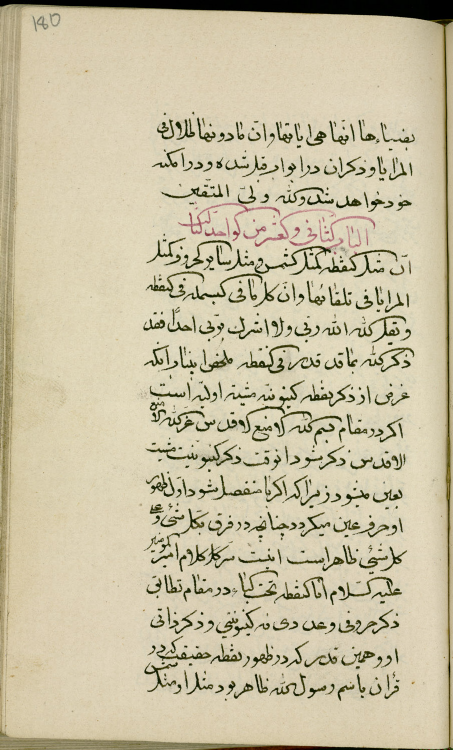 180
بضیاءها انها هی ایاتها وان مادونها ظلال فی
المرایا و ذکر ان در ابواب قبل شده و در امکنه
خود خواهد شد والله ولی المتقین
الباب الثانی والعشر من الواحد الثانی
ان مثل النقطه کمثل الشمس و مثل سایر الحروف کمثل
المرایا فی تلقائها وان کل ما فی البسمله فی النقطه
و تقل الله الله ربی ولا اشرک بربی احدا فقد
ذکر الله ما قد قدر فی النقطه ملخص این باب انکه
غرض از ذکر نقطه کینونیت مشیت اولیه است
اگر در مقام بسم الله الامنع الاقدس غیر الله الامنع
الاقدس ذکر شود انوقت ذکر کینونیت مشیت
بعین میشود زیرا که اگر با منفصل شود اول ظهور
او حرف عین میگردد چنانچه در فرق مکلشئ و علی
کلشیئ ظاهر است اینست سر کلام امیر المومنین
علیه السلام انا النقطه تحت الباء در مقام تطابق
ذکر حروفی و عددی نه کینونیتی و ذکر ذاتی
او و همین قدر که در ظهور نقطه حقیقت که در
قران باسم رسول الله ظاهر بود مثل او مثل شمس